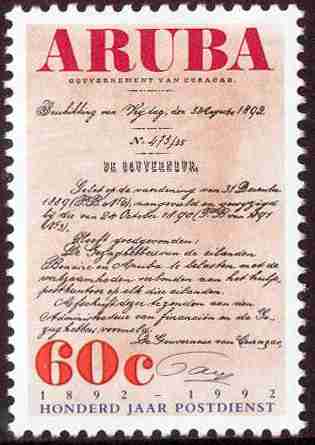 ARUBA
GOUVERNEMENT VAN CURAÇAO.
Beschikking van Vrijdag, den 5 Augustus 1892.
No. 473/25
DE GOUVERNEUR,
Gelet op de
1889 (P.B. No. 2),
bij die van 20 October 1890 (P.B. van 1891
Heeft goedgevonden:
De Gezaghebbers van de eilanden
Bonaire en Aruba te belasten met de
werkzaamheden verbonden aan het hulp
postkantoor op elk dier eilanden.
Afschrift dezer te zenden aan den
Administrateur van financiën en de Ge-
zaghebbers voormeld.
De Gouverneur van Curaçao,
60c
1892 - 1992
HONDERD JAAR POSTDIENST